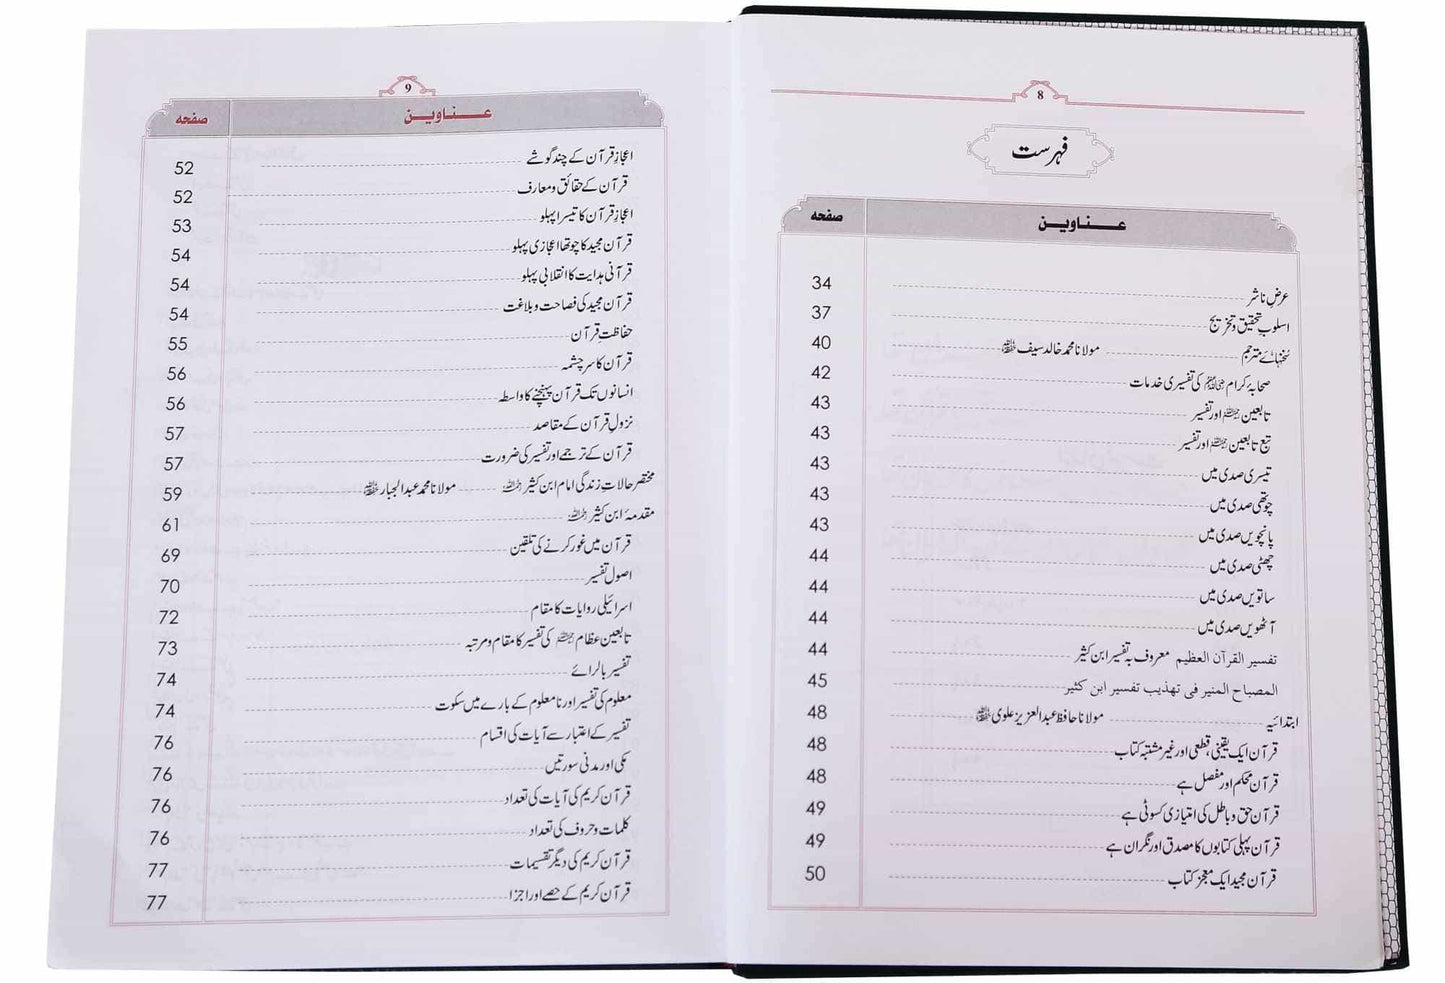 8
فہرست
عناوین صفحہ
عرضِ ناشر 34
اسلوبِ تحقیق و تخریج 37
سخنہائے مترجم مولانا محمد خالد سیف 40
صحابۂ کرام کی تفسیری خدمات 42
تابعین اور تفسیر 43
تبع تابعین اور تفسیر 43
تیسری صدی میں 43
چوتھی صدی میں 43
پانچویں صدی میں 43
چھٹی صدی میں 44
ساتویں صدی میں 44
آٹھویں صدی میں 44
تفسير القرآن العظيم معروف بہ تفسیر ابن کثیر 44
المصباح المنير فى تهذيب تفسير ابن كثير 45
ابتدائیہ مولانا حافظ عبدالعزیز علوی 48
قرآن ایک یقینی، قطعی اور غیر مشتبہ کتاب 48
قرآن محکم اور مفصل ہے 48
قرآن حق و باطل کی امتیازی کسوٹی ہے 49
قرآن پہلی کتابوں کا مصدق اور نگران ہے 49
قرآن مجید ایک معجز کتاب 50
9
عناوین صفحہ
اعجازِ قرآن کے چند گوشے 52
قرآن کے حقائق و معارف 52
اعجازِ قرآن کا تیسرا پہلو 53
قرآن مجید کا چوتھا اعجازی پہلو 54
قرآنی ہدایت کا انقلابی پہلو 54
قرآن مجید کی فصاحت و بلاغت 54
حفاظت قرآن 55
قرآن کا سرچشمہ 56
انسانوں تک قرآن پہنچنے کا واسطہ 56
نزولِ قرآن کے مقاصد 57
قرآن کے ترجمے اور تفسیر کی ضرورت 57
مختصر حالاتِ زندگی امام ابن کثیر مولانا محمد عبدالجبار 59
مقدمۂ ابن کثیر 61
قرآن میں غور کرنے کی تلقین 69
اصول تفسیر 70
اسرائیلی روایات کا مقام 72
تابعین عظام کی تفسیر کا مقام و مرتبہ 73
تفسیر بالرائے 74
معلوم کی تفسیر اور نامعلوم کے بارے میں سکوت 74
تفسیر کے اعتبار سے آیات کی اقسام 76
مکی اور مدنی سورتیں 76
قرآن کریم کی آیات کی تعداد 76
کلمات و حروف کی تعداد 76
قرآن کریم کی دیگر تقسیمات 77
قرآن کریم کے حصے اور اجزا 77